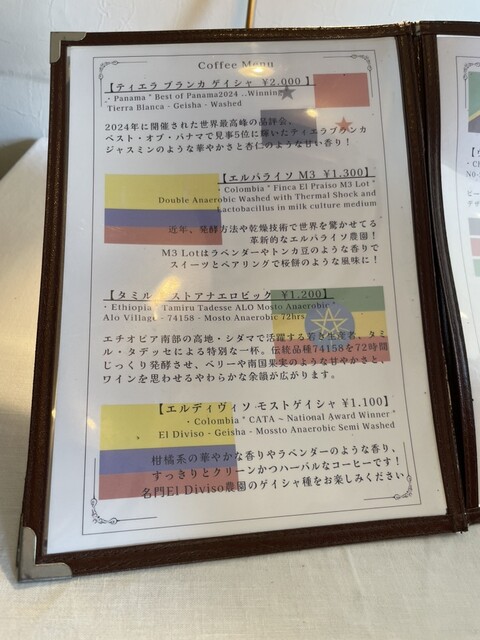 Coffee Menu
【ティエラ ブランカ ゲイシャ ¥2,000 】
- Panama " Best of Panama2024 ..Winning
Tierra Blanca - Geisha - Washed
2024年に開催された世界最高峰の品評会、
ベスト・オブ・パナマで見事5位に輝いたティエラブランカ
ジャスミンのような華やかさと杏仁のような甘い香り！
【エルパライソ M3 ¥1,300】
- Colombia " Finca El Praiso M3 Lot "
Double Anaerobic Washed with Thermal Shock and
Lactobacillus in milk culture medium
近年、発酵方法や乾燥技術で世界を驚かせてる
革新的なエルパライソ農園！
M3 Lotはラベンダーやトンカ豆のような香りで
スイーツとペアリングで桜餅のような風味に！
ストアナエロビック ¥1,200】
- Ethiopia " Tamiru Tadesse ALO Mosto Anaerobic "
Alo Village - 74158 - Mosto Anaerobic 72hrs
エチオピア南部の高地・シダマで活躍する若き生産者、タミ
ル・タデッセによる特別な一杯。伝統品種74158を72時間
じっくり発酵させ、ベリーや南国果実のような甘やかさと、
ワインを思わせるやわらかな余韻が広がります。
【エルディヴィソ モストゲイシャ ¥1,100】
- Colombia " CATA ~ National Award Winner "
El Diviso - Geisha - Mossto Anaerobic Semi Washed
柑橘系の華やかな香りやラベンダーのような香り、
すっきりとクリーンかつハーバルなコーヒーです！
名門El Diviso農園のゲイシャ種をお楽しみください